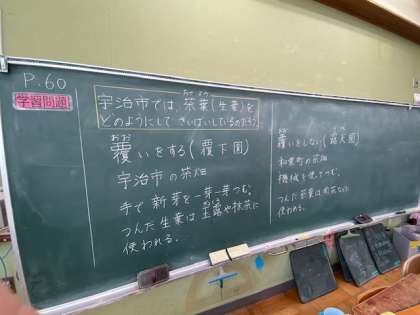 P.60
学習問題
宇治市では、茶葉(生葉)を
どのようにして さいばいしているのだろう。
おお
覆いをする(覆下園)
宇治市の茶畑
手で新芽を一芽一芽つむ。
つんだ生葉は玉露や抹茶に
使われる。
覆いをしない(露天園)
和束町の茶畑
機械を使ってつむ。
つんだ茶葉は煎茶などに
使われる。